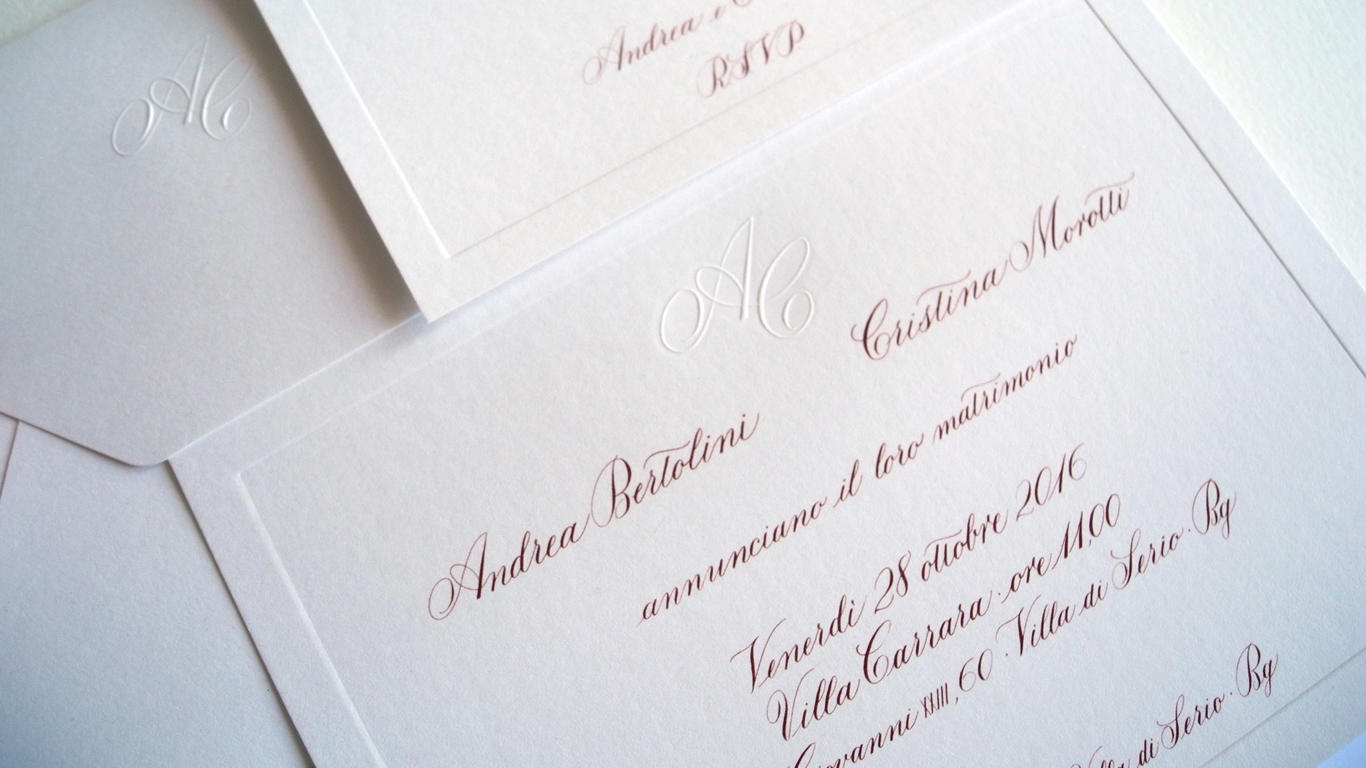 AC
Andrea e
RSVP
AC
Andrea Bertolini
Cristina Morotti
annunciano il loro matrimonio
Venerdì 28 ottobre 2016
Villa Carrara · ore 11,00
XXIII, 60 · Villa di Serio · Bg
di Serio · Bg